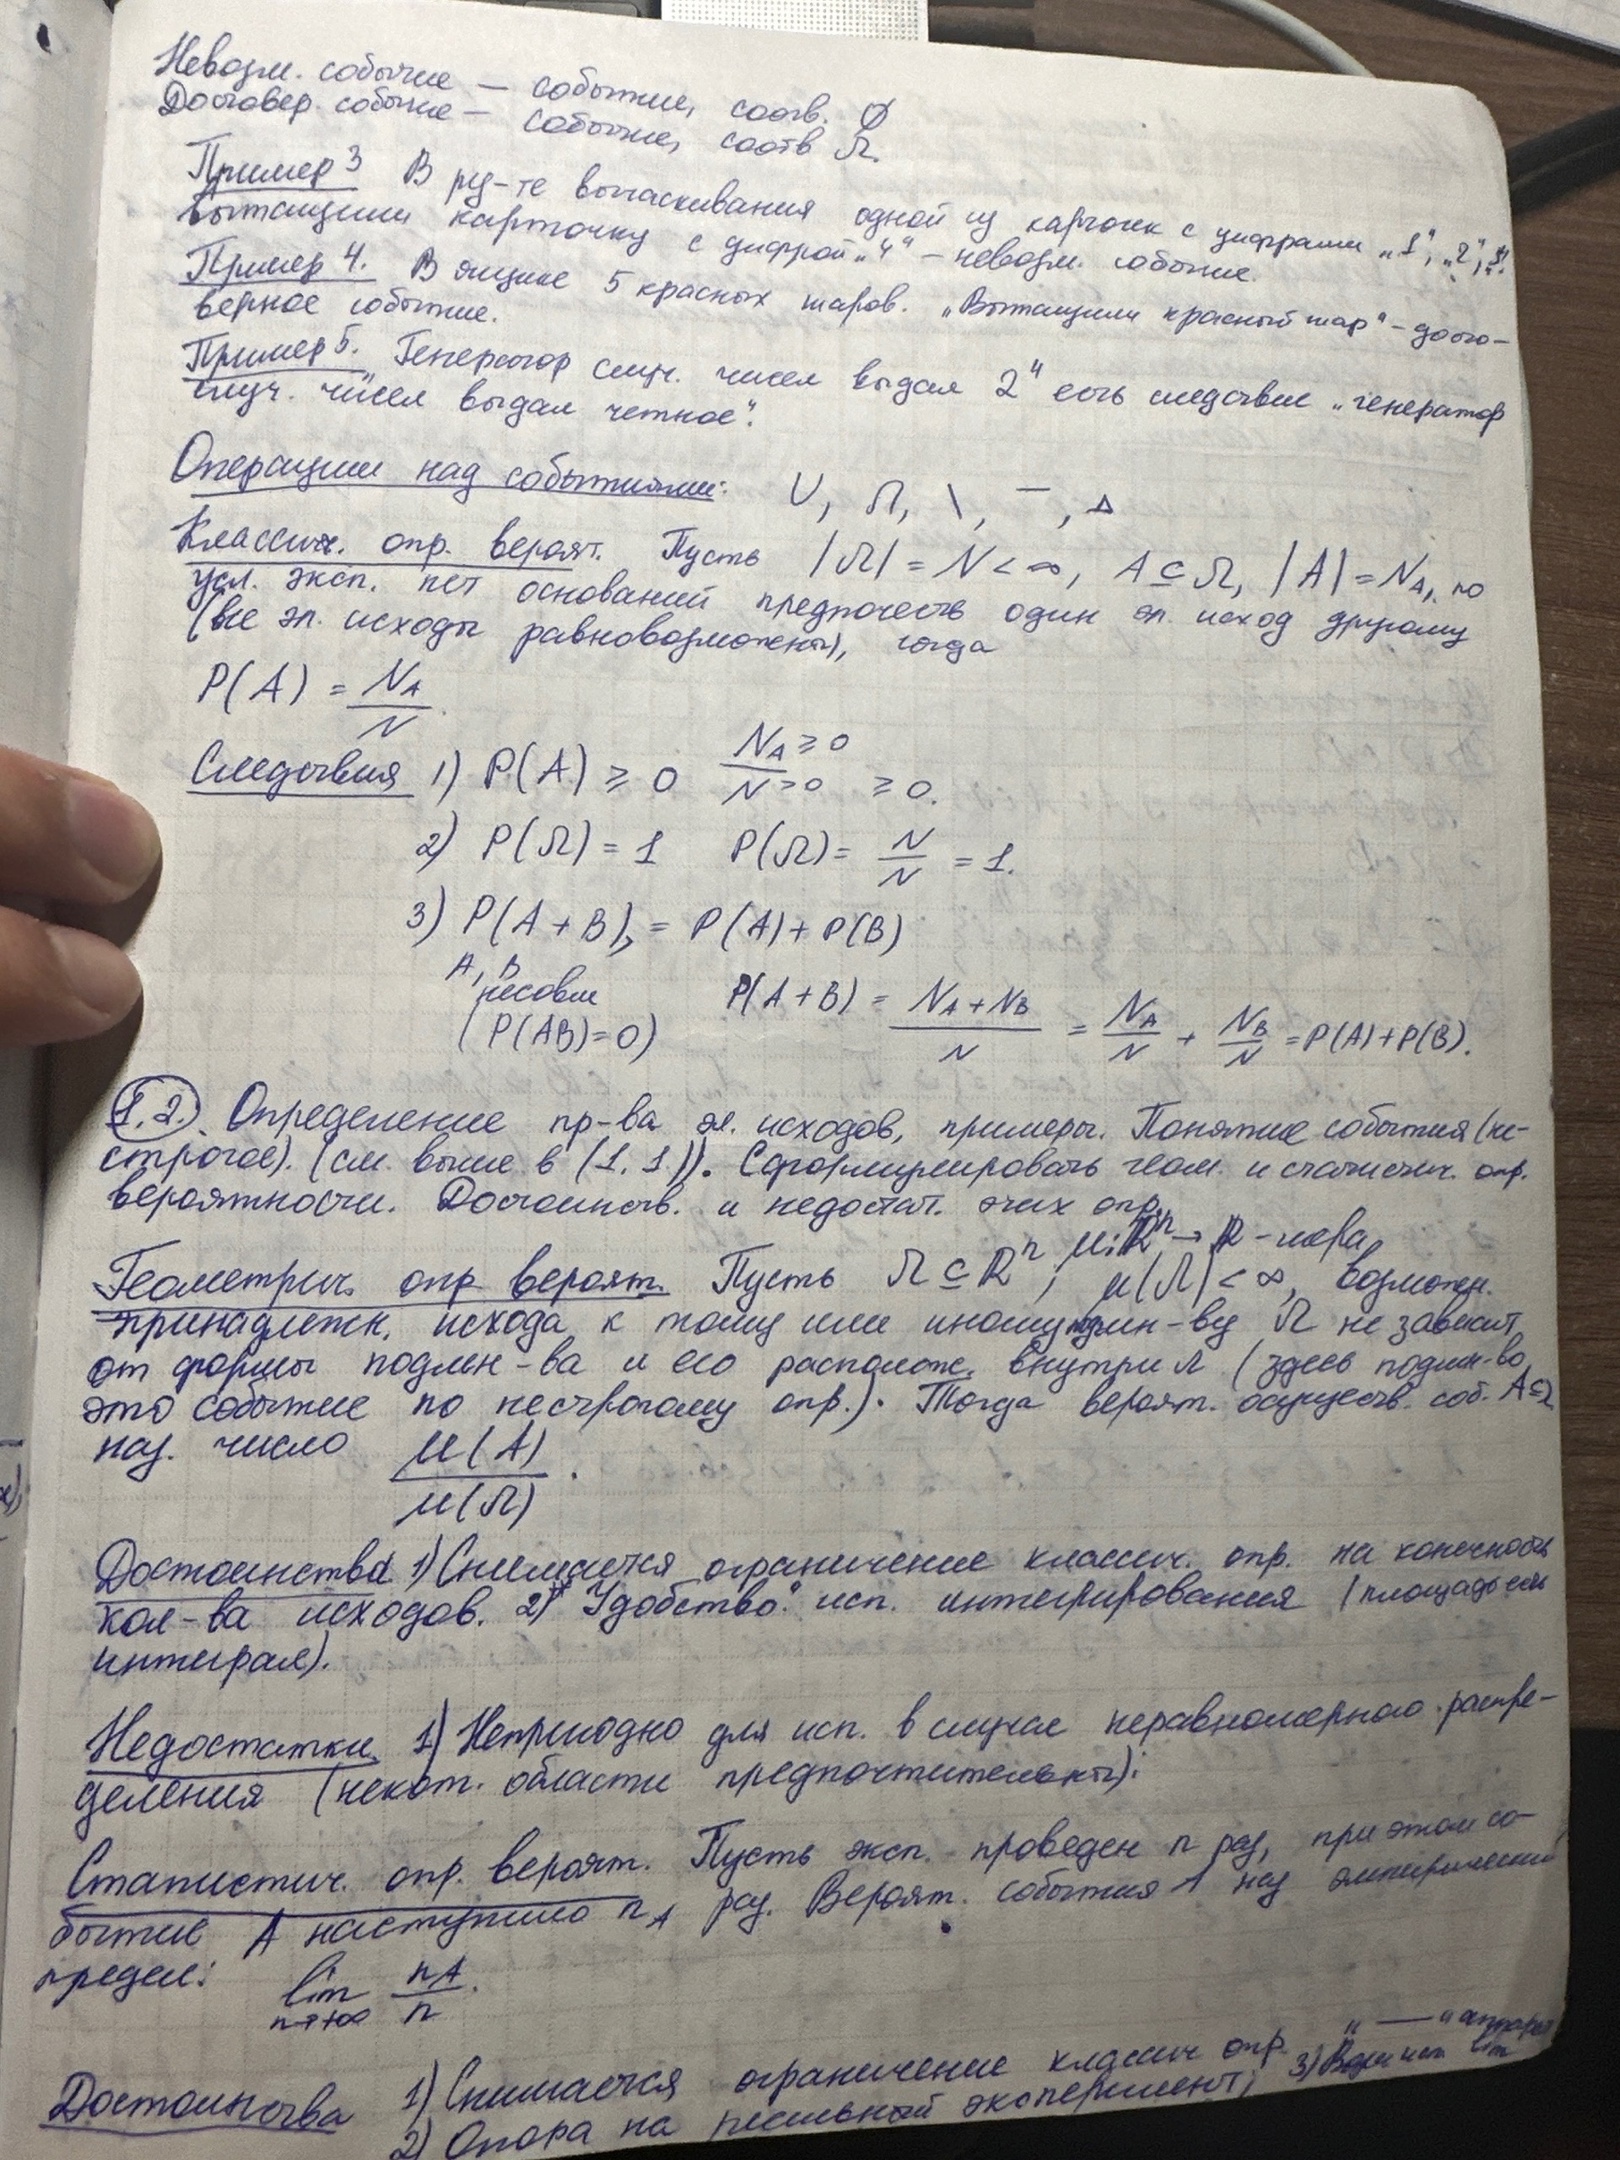 Невозм. событие — событие, соотв. ∅
Достовер. событие — событие, соотв Ω.
Пример 3 В рез-те вытаскивания одной из карточек с цифрами „1", „2", „3"
вытащили карточку с цифрой „4" – невозм. событие.
Пример 4. В ящике 5 красных шаров. „Вытащили красный шар" – досто-
верное событие.
Пример 5. „Генератор случ. чисел выдал 2" есть следствие „генератор
случ. чисел выдал четное".
Операции над событиями: ∪, ∩, \, ‾, Δ
Классич. опр. вероят. Пусть |Ω| = N < ∞, A ⊆ Ω, |A| = N_A, по
усл. эксп. нет оснований предпочесть один эл. исход другому
(все эл. исходы равновозможны), тогда
P(A) = N_A / N.
Следствия 1) P(A) ≥ 0 N_A ≥ 0 / N > 0 ≥ 0.
2) P(Ω) = 1 P(Ω) = N / N = 1.
3) P(A + B) = P(A) + P(B)
A, B
несовм
(P(AB) = 0) P(A + B) = (N_A + N_B) / N = N_A / N + N_B / N = P(A) + P(B).
1.2. Определение пр-ва эл. исходов, примеры. Понятие события (не-
строгое). (см. выше в (1.1)). Сформулировать геом. и статистич. опр.
вероятности. Достоинств. и недостат. этих опр.
Геометрич. опр вероят. Пусть Ω ⊆ ℝⁿ, μ: ℝⁿ → ℝ – мера, μ(Ω) < ∞, возможн.
принадлежн. исхода к тому или иному подмн-ву Ω не зависит
от формы подмн-ва и его располож. внутри Ω (здесь подмн-во
это событие по нестрогому опр.). Тогда вероят. осуществ. соб. A ⊆ Ω
наз. число μ(A) / μ(Ω).
Достоинства 1) Снимается ограничение классич. опр. на конечность
кол-ва исходов. 2) "Удобство": исп. интегрирования (площадь есть
интеграл).
Недостатки 1) Непригодно для исп. в случае неравномерного распре-
деления (некот. области предпочтительны);
Статистич. опр. вероят. Пусть эксп. проведен n раз, при этом со-
бытие A наступило n_A раз. Вероят. события A наз эмпирический
предел: lim n→+∞ n_A / n.
Достоинства 1) Снимается ограничение классич опр „ — "
2) Опора на реальный эксперимент; 3) lim